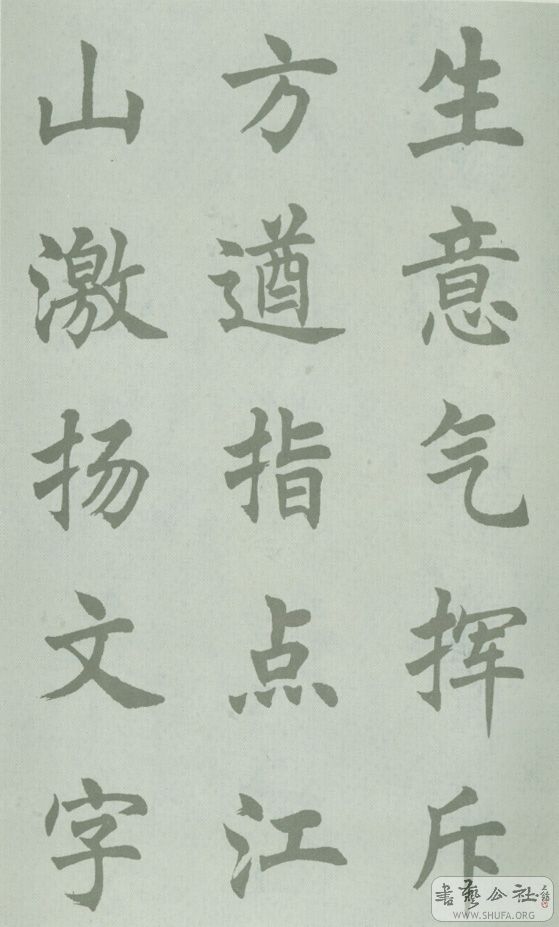 生意气挥斥
方遒指点江
山激扬文字
書藝公社
WWW.SHUFA.ORG